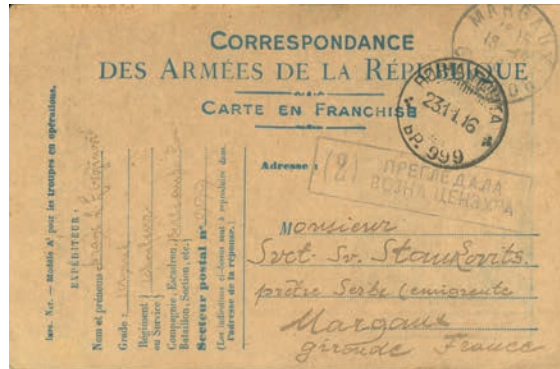 CORRESPONDANCE
DES ARMÉES DE LA RÉPUBLIQUE
CARTE EN FRANCHISE
MARGAUX
23.11.16
БР. 999
Adresse :
(2) ПРЕГЛЕДАЛА
ВОЈНА ЦЕНЗУРА
Monsieur
Svet. Sv. Stankovits.
prêtre Serbe (emigrente
Margaux
gironde France
Impr. Nat. — Modèle A¹ pour les troupes en opérations.
EXPÉDITEUR :
Nom et prénoms
Grade :
Régiment
ou Service
Compagnie, Escadron,
Bataillon, Section, etc.
Secteur postal n° 999
(Les indications ci-dessus sont à reproduire dans
l'adresse de la réponse.)